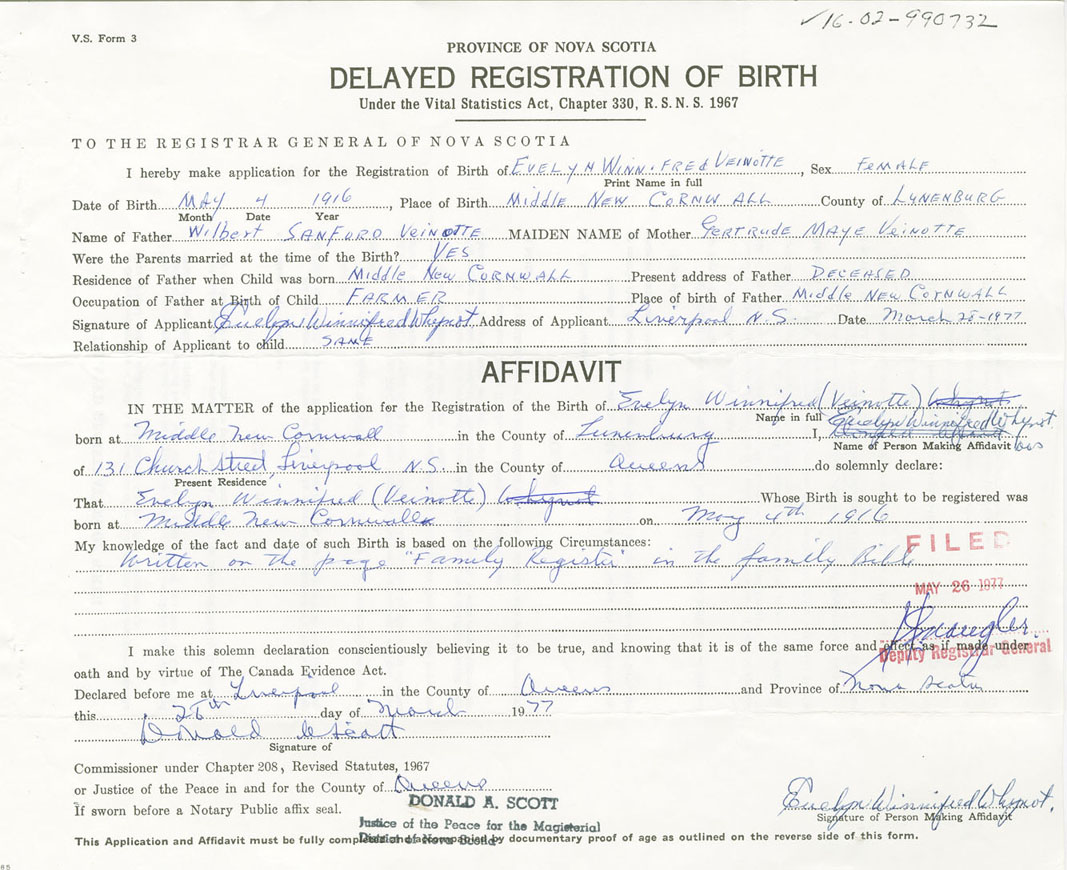 ✓16-02-990732
V.S. Form 3
PROVINCE OF NOVA SCOTIA
DELAYED REGISTRATION OF BIRTH
Under the Vital Statistics Act, Chapter 330, R.S.N.S. 1967
TO THE REGISTRAR GENERAL OF NOVA SCOTIA
I hereby make application for the Registration of Birth of EVELYN WINNIFRED VEINOTTE, Sex FEMALE
Print Name in full
Date of Birth MAY 4 1916, Place of Birth MIDDLE NEW CORNWALL County of LUNENBURG
Month Date Year
Name of Father Wilbert SANFORD VEINOTTE MAIDEN NAME of Mother GERTRUDE MAYE VEINOTTE
Were the Parents married at the time of the Birth? YES
Residence of Father when Child was born Middle New CORNWALL Present address of Father DECEASED
Occupation of Father at Birth of Child FARMER Place of birth of Father Middle NEW CORNWALL
Signature of Applicant Evelyn Winnifred Whynot Address of Applicant Liverpool N.S. Date March 28-1977
Relationship of Applicant to child SAME
AFFIDAVIT
IN THE MATTER of the application for the Registration of the Birth of Evelyn Winnifred (Veinotte) Whynot
Name in full Evelyn Winnifred Whynot.
born at Middle New Cornwall in the County of Lunenburg I,
Name of Person Making Affidavit
of 131 Church Street, Liverpool N.S. in the County of Queens do solemnly declare:
Present Residence
That Evelyn Winnifred (Veinotte) Whynot Whose Birth is sought to be registered was
born at Middle New Cornwall on May 4th 1916
My knowledge of the fact and date of such Birth is based on the following Circumstances:
Written on the page "Family Register" in the family Bible
FILED
MAY 26 1977
I make this solemn declaration conscientiously believing it to be true, and knowing that it is of the same force and effect as if made under
Deputy Registrar General
oath and by virtue of The Canada Evidence Act.
Declared before me at Liverpool in the County of Queens and Province of Nova Scotia
this 28th day of March 1977
Donald A Scott
Signature of
Commissioner under Chapter 208, Revised Statutes, 1967
or Justice of the Peace in and for the County of Queens
If sworn before a Notary Public affix seal.
DONALD A. SCOTT
Justice of the Peace for the Magisterial
District of Nova Scotia
Evelyn Winnifred Whynot.
Signature of Person Making Affidavit
This Application and Affidavit must be fully completed and accompanied by documentary proof of age as outlined on the reverse side of this form.